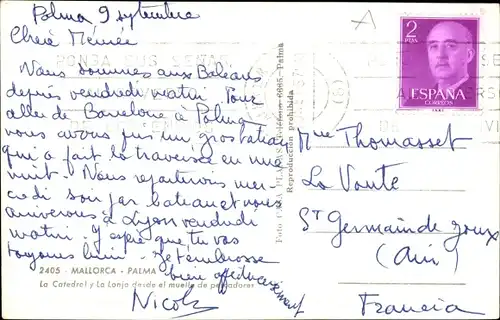 Palma 9 septembre
Chère Mémée
Nous sommes aux Baléares
depuis vendredi matin. Pour
aller de Barcelone à Palma
nous avons pris un gros bateau
qui a fait la traversée en une
nuit. Nous repartirons mer-
credi soir par bateau et nous
arriverons à Lyon vendredi
matin. J'espère que tu vas
toujours bien. Je t'embrasse
bien affectueusement
Nicole
2405 - MALLORCA - PALMA
La Catedral y La Lonja desde el muelle de pescadores
Reproducción prohibida
2
PTAS
ESPAÑA
CORREOS
Mme Thomasset
La Voute
St Germain de Joux
(Ain)
Francia